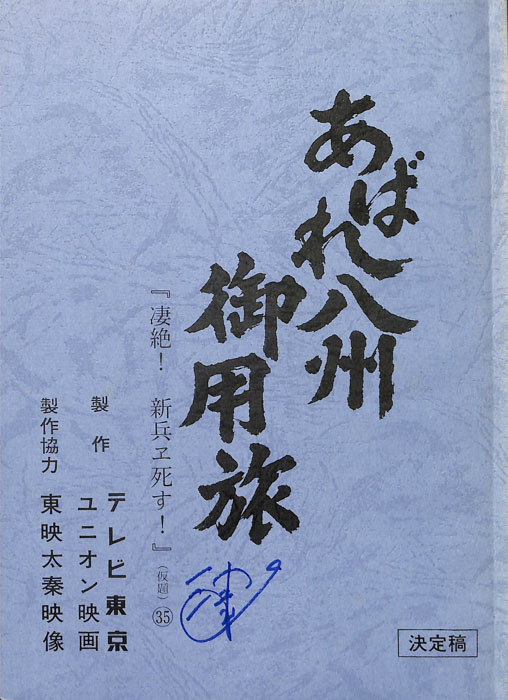 あばれ八州
御用旅
『凄絶！　新兵ヱ死す！』（仮題）㉟
製作　テレビ東京
ユニオン映画
製作協力　東映太秦映像
決定稿